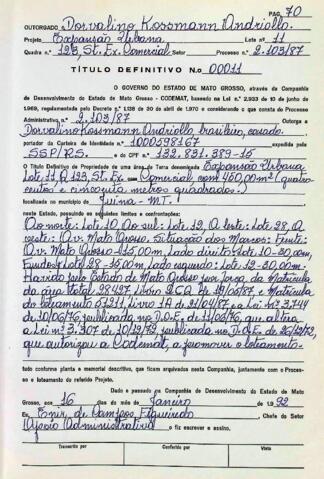 PAG. 70
OUTORGADO Dorvalino Kossmann Andriollo.
Projeto Expansão Urbana Lote n.º 11
Quadra n.º 123, St. Ex. Comercial Setor Processo n.º 2.103/87
TÍTULO DEFINITIVO N.o 00011
O GOVERNO DO ESTADO DE MATO GROSSO, através da Companhia
de Desenvolvimento do Estado de Mato Grosso - CODEMAT, baseado na Lei n.º 2.933 de 10 de junho
de 1969, regulamentada pelo Decreto n.º 1.138 de 30 de abril de 1970 e considerando o que consta do Processo
Administrativo, n.º 2.103/87 Outorga a
Dorvalino Kossmann Andriollo, brasileiro, casado.
portador da Carteira de Identidade n.º 1000598167 expedida pela
SSP/RS. e do CPF n.º 132.831.389-15
O Título Definitivo de Propriedade de uma área de terra denominada Expansão Urbana
Lote 11, Q. 123, St. Ex. Comercial com 450,00m² (quatro
centos e cincoenta metros quadrados.)
localizada no município de Juina - MT.
neste Estado, possuindo os seguintes limites e confrontações:
Ao norte: Lote 10, Ao sul: Lote 12, A leste: Lote 28, A
oeste: Av. Mato Grosso. Situação dos Marcos: Frente:
Av. Mato Grosso - 15,00m, Lado direito: Lote 10 - 30,00m,
Fundos: Lote 28 - 15,00m Lado esquerdo: Lote 12 - 30,00m -
Havido pelo Estado de Mato Grosso por força da Matrícula
da área total 28.427 Livro 2
loteamento 51211, Livro 1A de 21/04/87 e Lei nº 3.744
de 10/06/76, publicada no D.O.E. de 11/06/76, que altera
a Lei nº 3.307 de 10/12/72, publicada no D.O.E. de 26/12/72,
que autorizou a Codemat, a promover o loteamento.
tudo conforme planta e memorial descritivo, que ficam arquivados nesta Companhia, juntamente com o Proces-
so e loteamento do referido Projeto.
Dado e passado na Companhia de Desenvolvimento do Estado de Mato
Grosso, aos 16 dias do mês de Janeiro de 1.992
Eu Enir de Campos Figueiredo Chefe do Setor
Apoio Administrativo o fiz escrever e assino.
Transcrito por Conferido por Visto